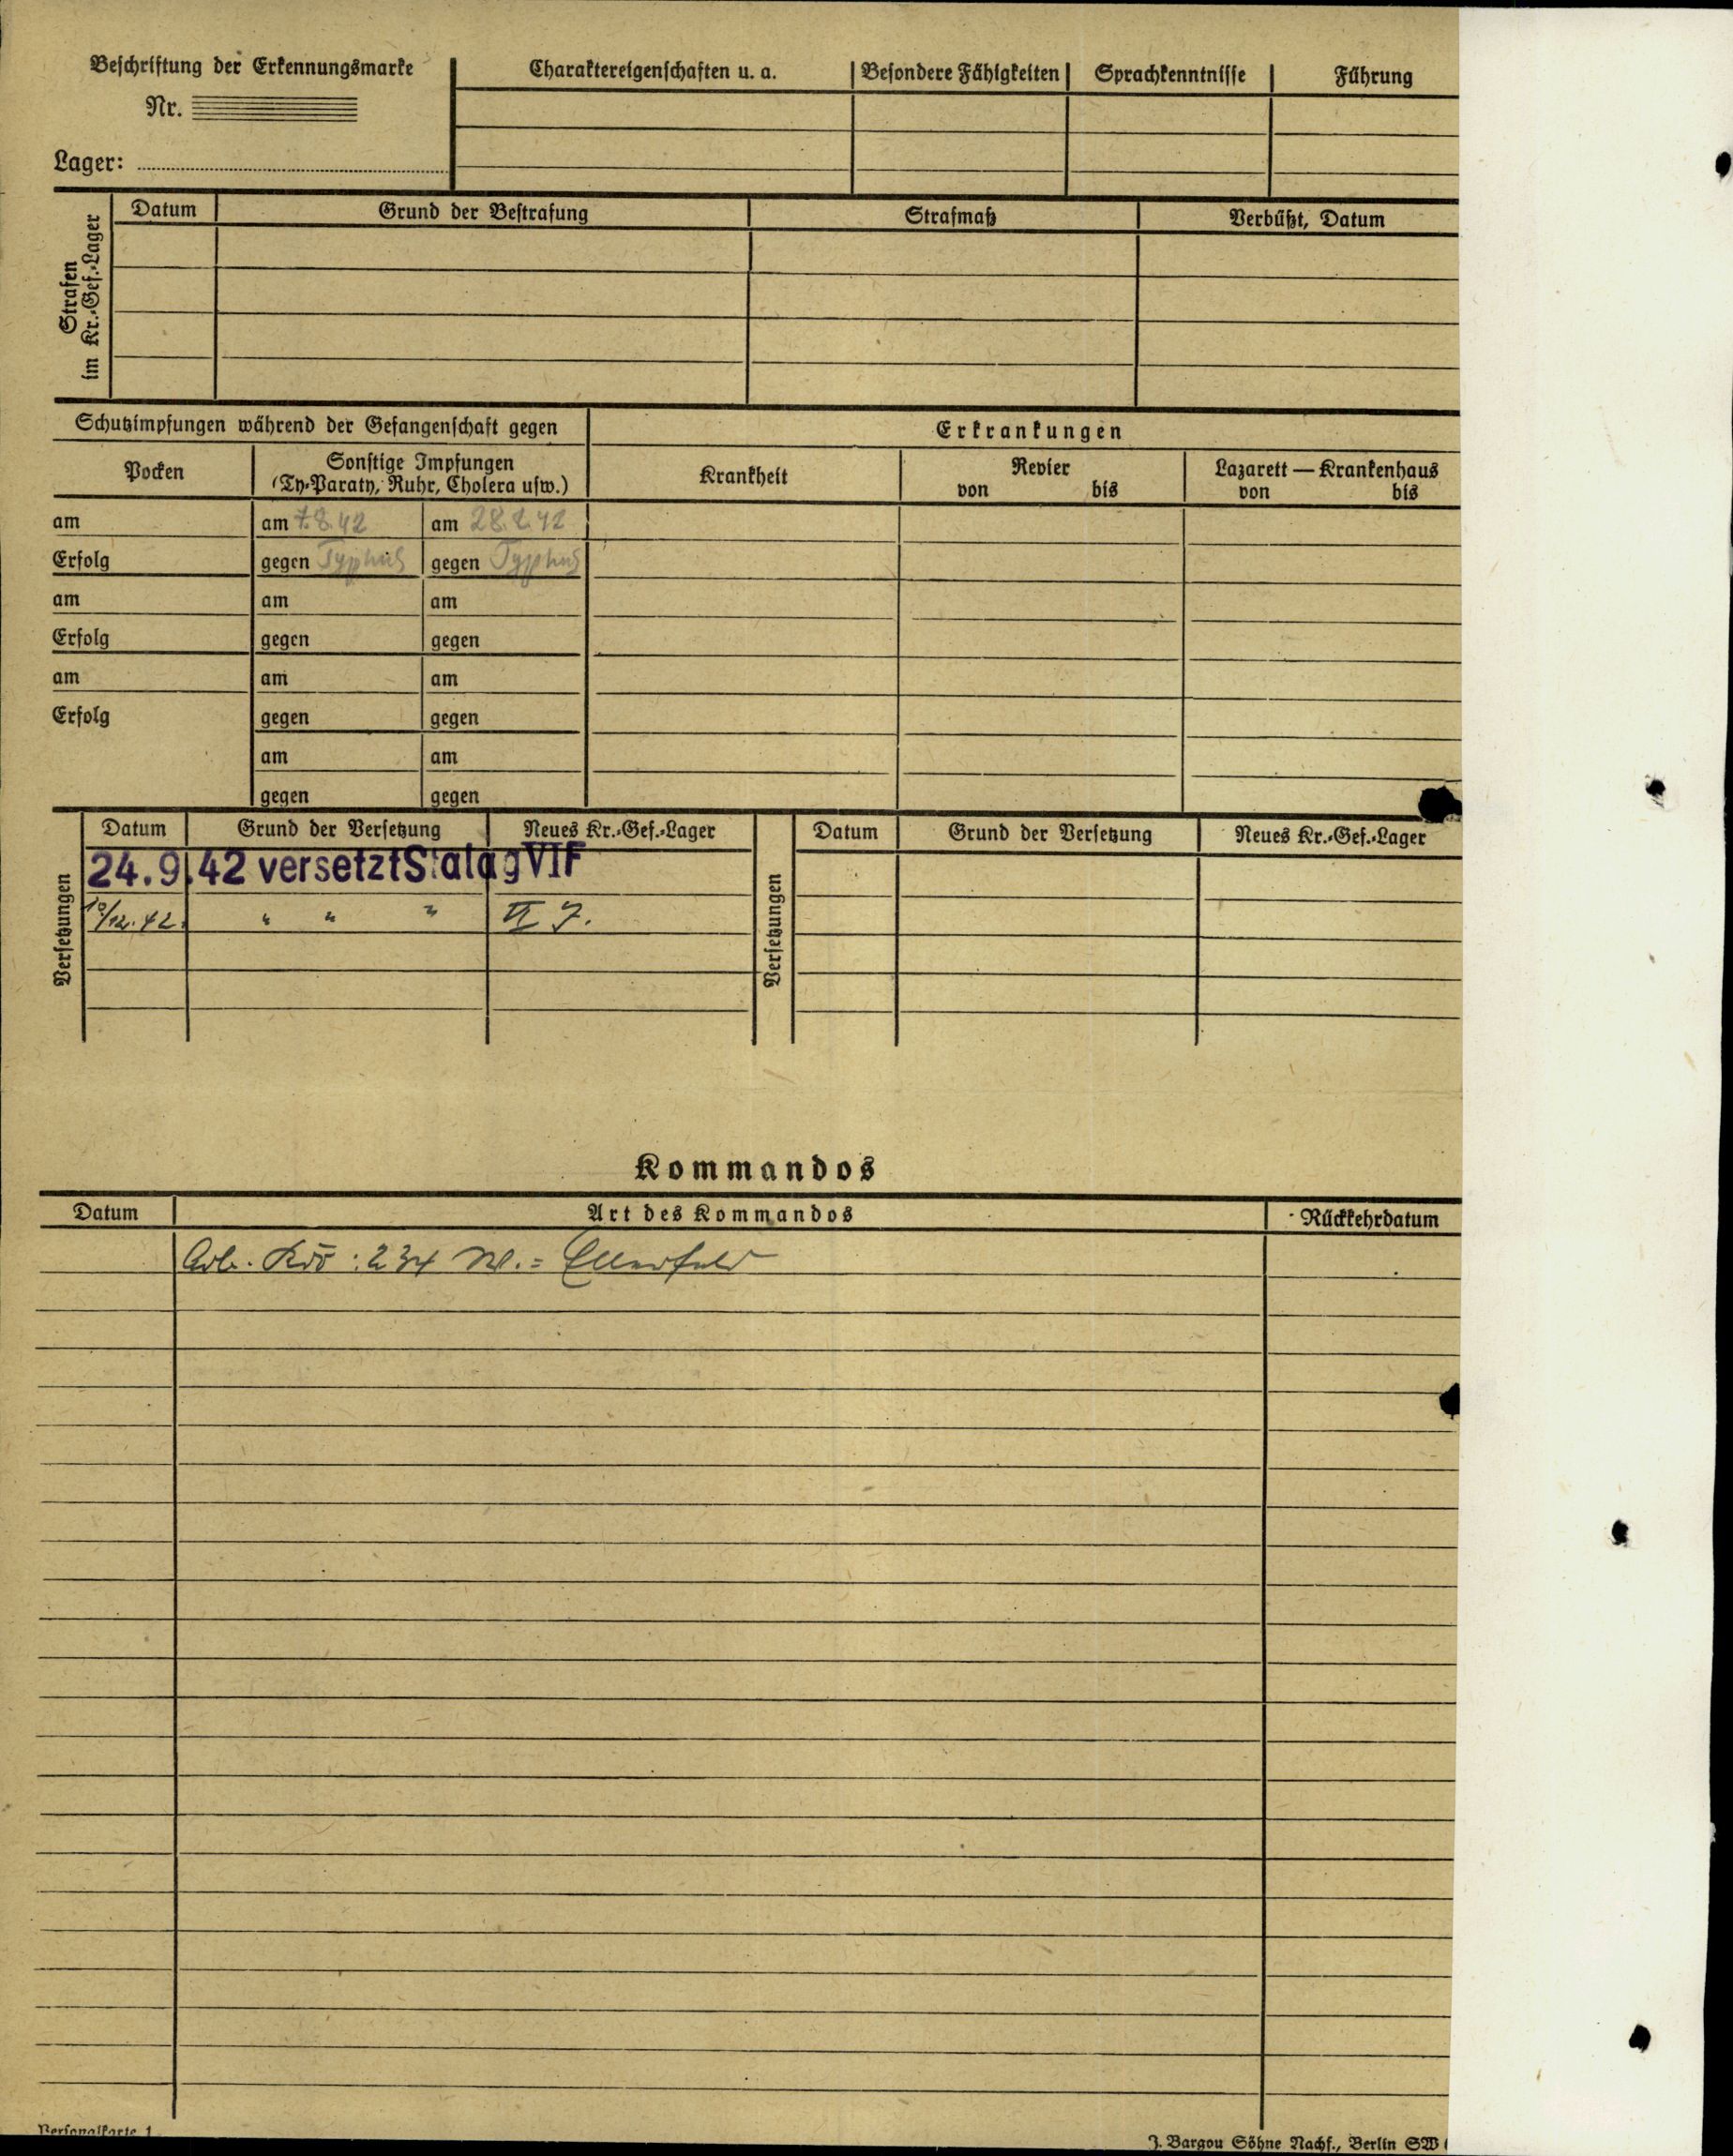 Beschriftung der Erkennungsmarke
Nr.
Lager:
Charaktereigenschaften u. a.
Besondere Fähigkeiten
Sprachkenntnisse
Führung
Strafen
im Kr.-Gef.-Lager
Datum
Grund der Bestrafung
Strafmaß
Verbüßt, Datum
Schutzimpfungen während der Gefangenschaft gegen
Pocken
Sonstige Impfungen
(Ty-Paraty, Ruhr, Cholera usw.)
am
am 7.8.42
am 28.2.42
Erfolg
gegen Typhus
gegen Typhus
am
am
am
Erfolg
gegen
gegen
am
am
am
Erfolg
gegen
gegen
am
am
gegen
gegen
Erkrankungen
Krankheit
Revier
von bis
Lazarett — Krankenhaus
von bis
Versetzungen
Datum
Grund der Versetzung
Neues Kr.-Gef.-Lager
24.9.42 versetzt Stalag VI F
10/12.42. " " " VI J.
Versetzungen
Datum
Grund der Versetzung
Neues Kr.-Gef.-Lager
Kommandos
Datum
Art des Kommandos
Rückkehrdatum
Arb. Kdo : 234
Personalkarte 1
J. Bargou Söhne Nachf., Berlin SW